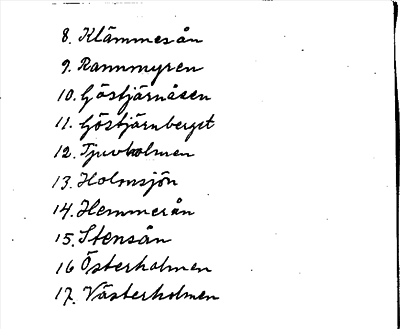 8. Klämmesån
9. Rammyren
10. Göstjärnåsen
11. Göstjärnberget
12. Tjuvholmen
13. Holmsjön
14. Hemmerån
15. Stensån
16 Österholmen
17. Västerholmen